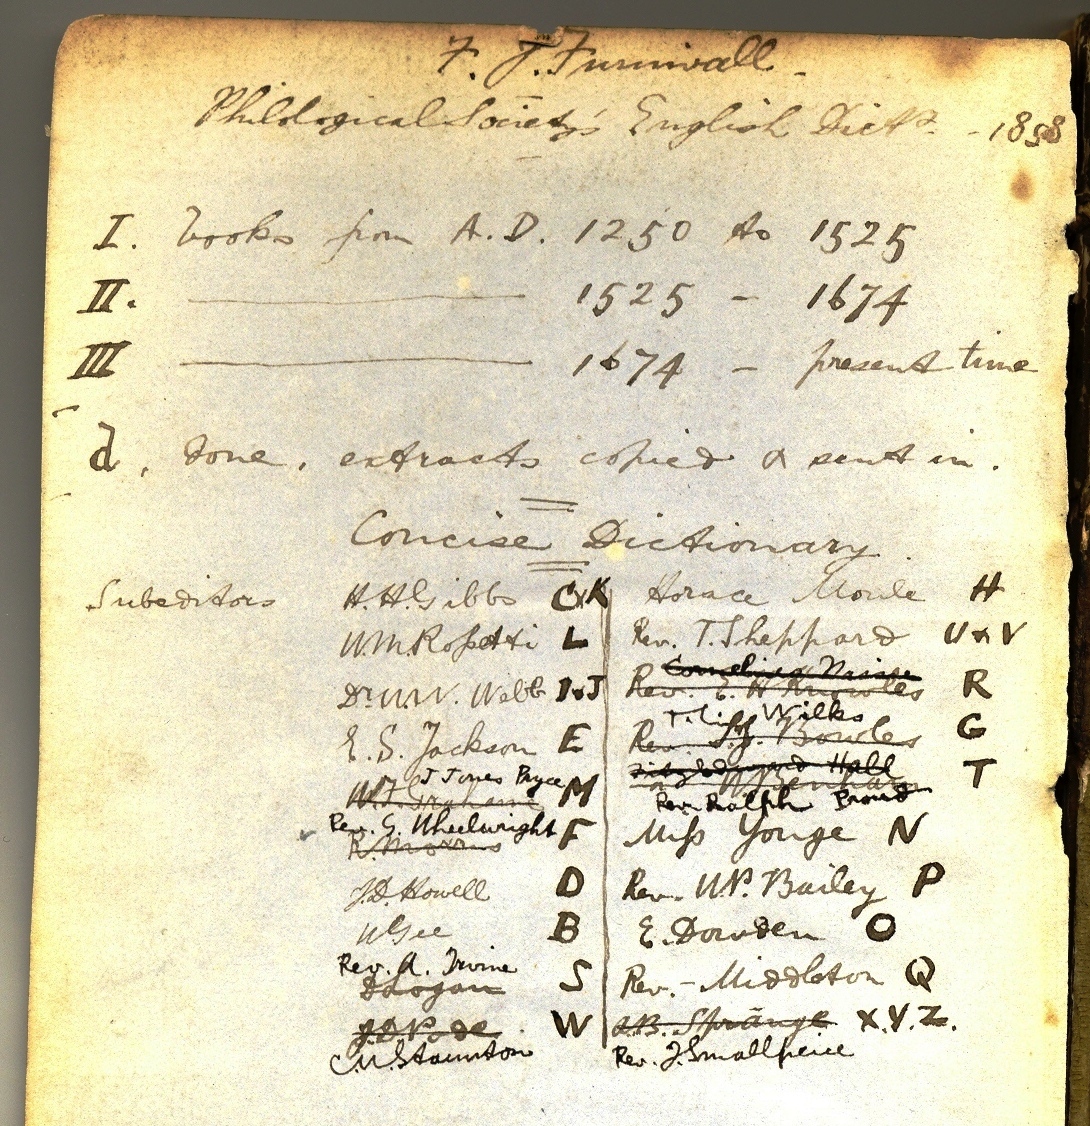 F. J. Furnivall.
Philological Society's English Dict?. - 1858
I. books from A.D. 1250 to 1525
II. 1525 - 1674
III 1674 - present time
d, done, extracts copied & sent in.
Concise Dictionary.
Subeditors H.H. Gibbs C&K Horace Moule H
W.M. Rossetti L Rev. T. Sheppard U & V
Cornelius
Dr. W.W. Webb I&J Rev. E. H. Knowles R
Wilks
E. S. Jackson E Rev. Bowles G
Hall
J Jones Pryce T
M Rev. Ralph Proud
Rev. G. Wheelwright F Miss Yonge N
R. Morris
J.D. Howell D Rev. W.P. Bailey P
W Gee B E. Dowden O
Rev. A. Irvine
S Rev. - Middleton Q
W X.Y.Z.
Staunton Rev. J. Smallpeice